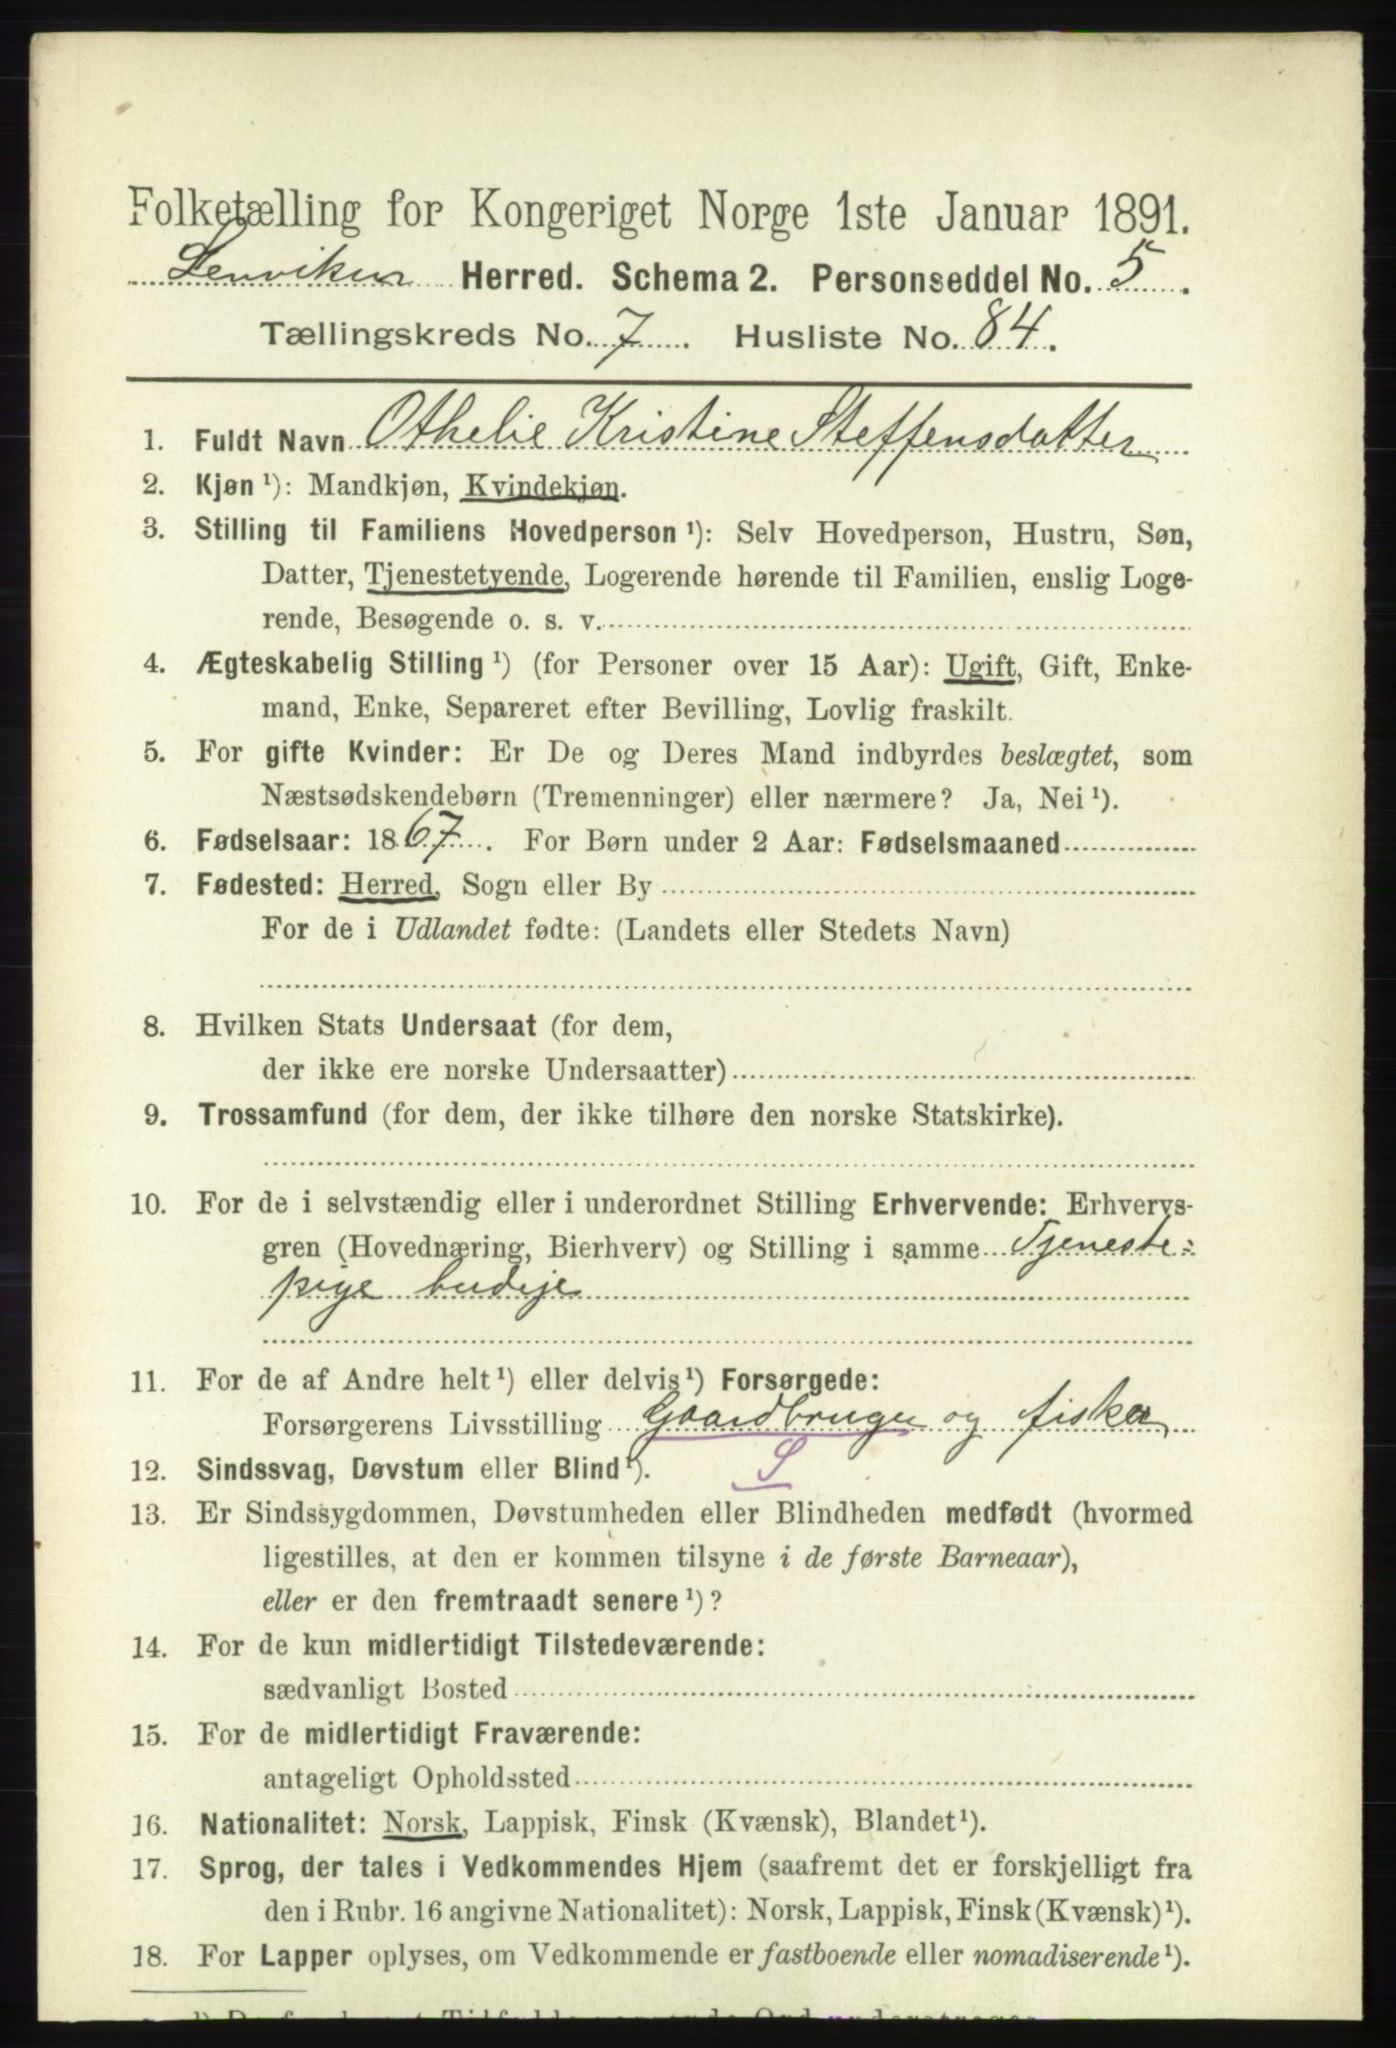 Folketælling for Kongeriget Norge 1ste Januar 1891.
Lenviken Herred. Schema 2. Personseddel No. 5.
Tællingskreds No. 7. Husliste No. 84.
1. Fuldt Navn Othelie Kristine Steffensdatter
2. Kjøn ¹): Mandkjøn, Kvindekjøn.
3. Stilling til Familiens Hovedperson ¹): Selv Hovedperson, Hustru, Søn,
Datter, Tjenestetyende, Logerende hørende til Familien, enslig Loge-
rende, Besøgende o. s. v.
4. Ægteskabelig Stilling ¹) (for Personer over 15 Aar): Ugift, Gift, Enke-
mand, Enke, Separeret efter Bevilling, Lovlig fraskilt.
5. For gifte Kvinder: Er De og Deres Mand indbyrdes beslægtet, som
Næstsødskendebørn (Tremenninger) eller nærmere? Ja, Nei ¹).
6. Fødselsaar: 1867. For Børn under 2 Aar: Fødselsmaaned
7. Fødested: Herred, Sogn eller By
For de i Udlandet fødte: (Landets eller Stedets Navn)
8. Hvilken Stats Undersaat (for dem,
der ikke ere norske Undersaatter)
9. Trossamfund (for dem, der ikke tilhøre den norske Statskirke).
10. For de i selvstændig eller i underordnet Stilling Erhvervende: Erhvervs-
gren (Hovednæring, Bierhverv) og Stilling i samme Tjeneste-
pige budeje
11. For de af Andre helt ¹) eller delvis ¹) Forsørgede:
Forsørgerens Livsstilling Gaardbruger og fisker
12. Sindssvag, Døvstum eller Blind ¹). S
13. Er Sindssygdommen, Døvstumheden eller Blindheden medfødt (hvormed
ligestilles, at den er kommen tilsyne i de første Barneaar),
eller er den fremtraadt senere ¹)?
14. For de kun midlertidigt Tilstedeværende:
sædvanligt Bosted
15. For de midlertidigt Fraværende:
antageligt Opholdssted
16. Nationalitet: Norsk, Lappisk, Finsk (Kvænsk), Blandet ¹).
17. Sprog, der tales i Vedkommendes Hjem (saafremt det er forskjelligt fra
den i Rubr. 16 angivne Nationalitet): Norsk, Lappisk, Finsk (Kvænsk) ¹).
18. For Lapper oplyses, om Vedkommende er fastboende eller nomadiserende ¹).